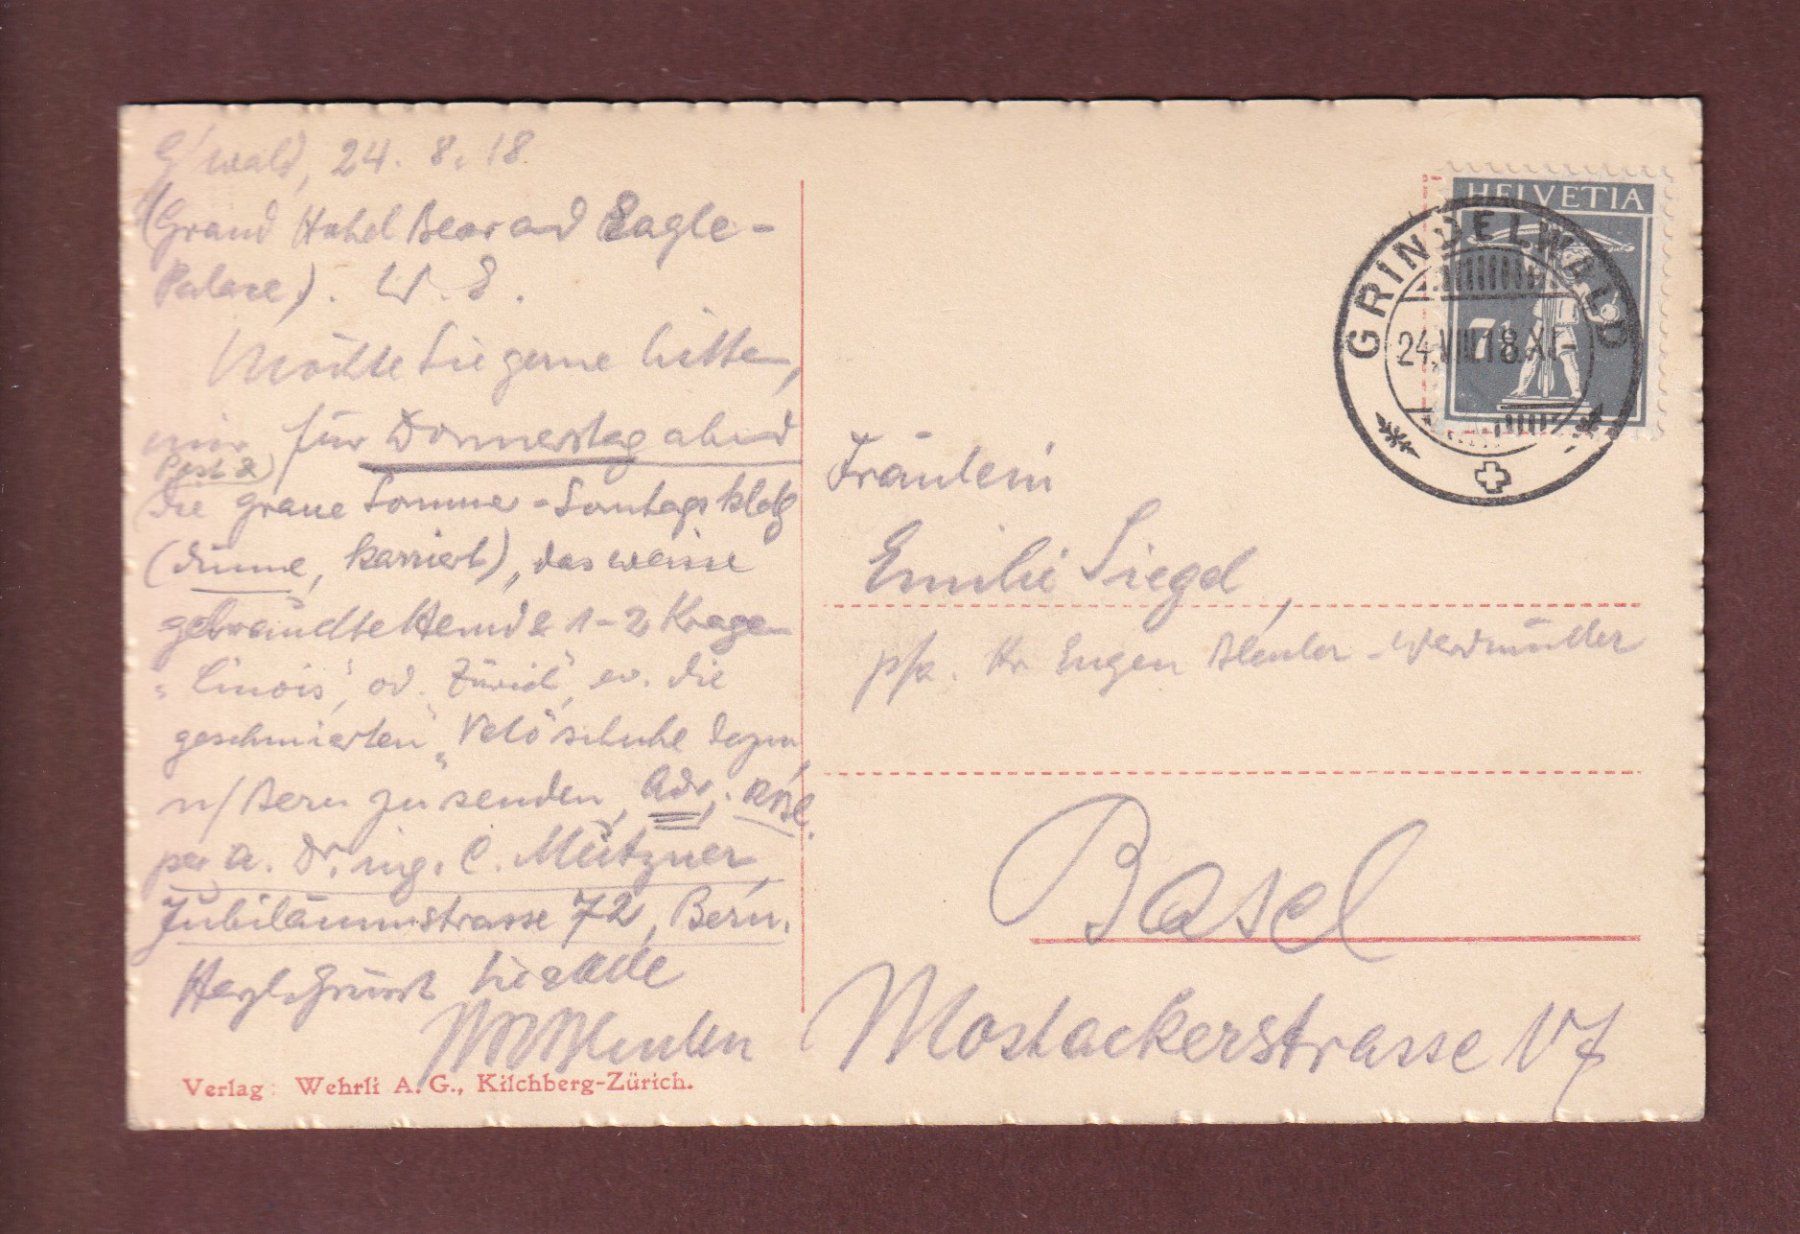 G'wald, 24. 8. 18
(Grand Hotel Bear and Eagle-
Palace). W. E.
Möchte Sie gerne bitten,
mir für Donnerstag abend
Post &
die graue Sommer-Sontagskldg
(dünne, karriert), das weisse
Hemd & 1-2 Kragen
od. Zürich", ev. die
geschmierten "Velo"schuhe dazu,
n/Bern zu senden, Adr.:
per a. Dr. ing. C. Mützner,
Jubiläumsstrasse 72, Bern.
Herzl. Grüsst Sie & Alle
Verlag: Wehrli A. G., Kilchberg-Zürich.
HELVETIA
7½
GRINDELWALD
24.VIII.18.XI-
Fräulein
Emilie Siegel,
Eugen Bleuler-Werdmüller
Basel
Mostackerstrasse 17